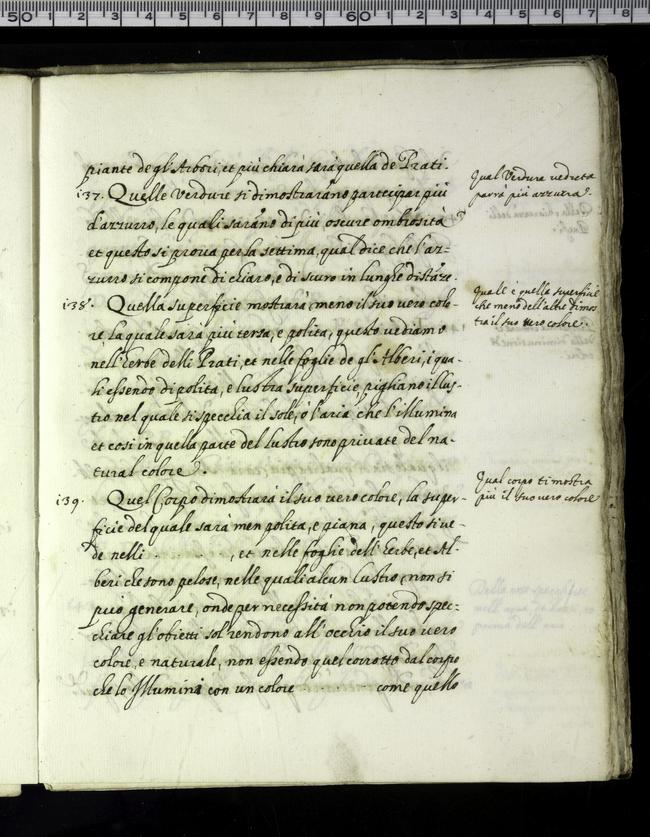 piante de gl'Arbori, et più chiara sarà quella de Prati.
137. Quelle verdure si dimostrarano partecipar più
d'azzurro, le quali sarano di più oscure ombrosità
et questo si prova per la settima, qual dice che l'az-
zurro si compone di chiaro, e di scuro in lunghe distaze.
138. Quella superficie mostrarà meno il suo vero colo-
re la quale sarà più tersa, e polita, questo vediamo
nell'erbe delli Prati, et nelle foglie de gl'Alberi, i qua-
li essendo di polita, e lustra superficie, pigliano il lus-
tro nel quale si specchia il sole, ò l'aria che l'illumina
et cosi in quella parte del lustro sono private del na-
tural colore.
139. Quel Corpo dimostrarà il suo vero colore, la super-
ficie del quale sarà men polita, e piana, questo si ve-
de nelli . . . , et nelle foglie dell'Erbe, et Al-
beri che sono pelose, nelle quali alcun lustro, non si
può generare, onde per necessità non potendo spec-
chiare gl'obietti sol rendono all'occhio il suo vero
colore, e naturale, non essendo quel corrotto dal corpo
che lo Illumini con un colore . . . come quello
Qual Verdura vedreta
parrà più azzurra.
Quale è quella superficie
che meno dell'altre dimos
tra il suo vero colore.
Qual corpo ti mostra
più il suo vero colore
60
7
8
9
1
2
3
4
5
6
7
8